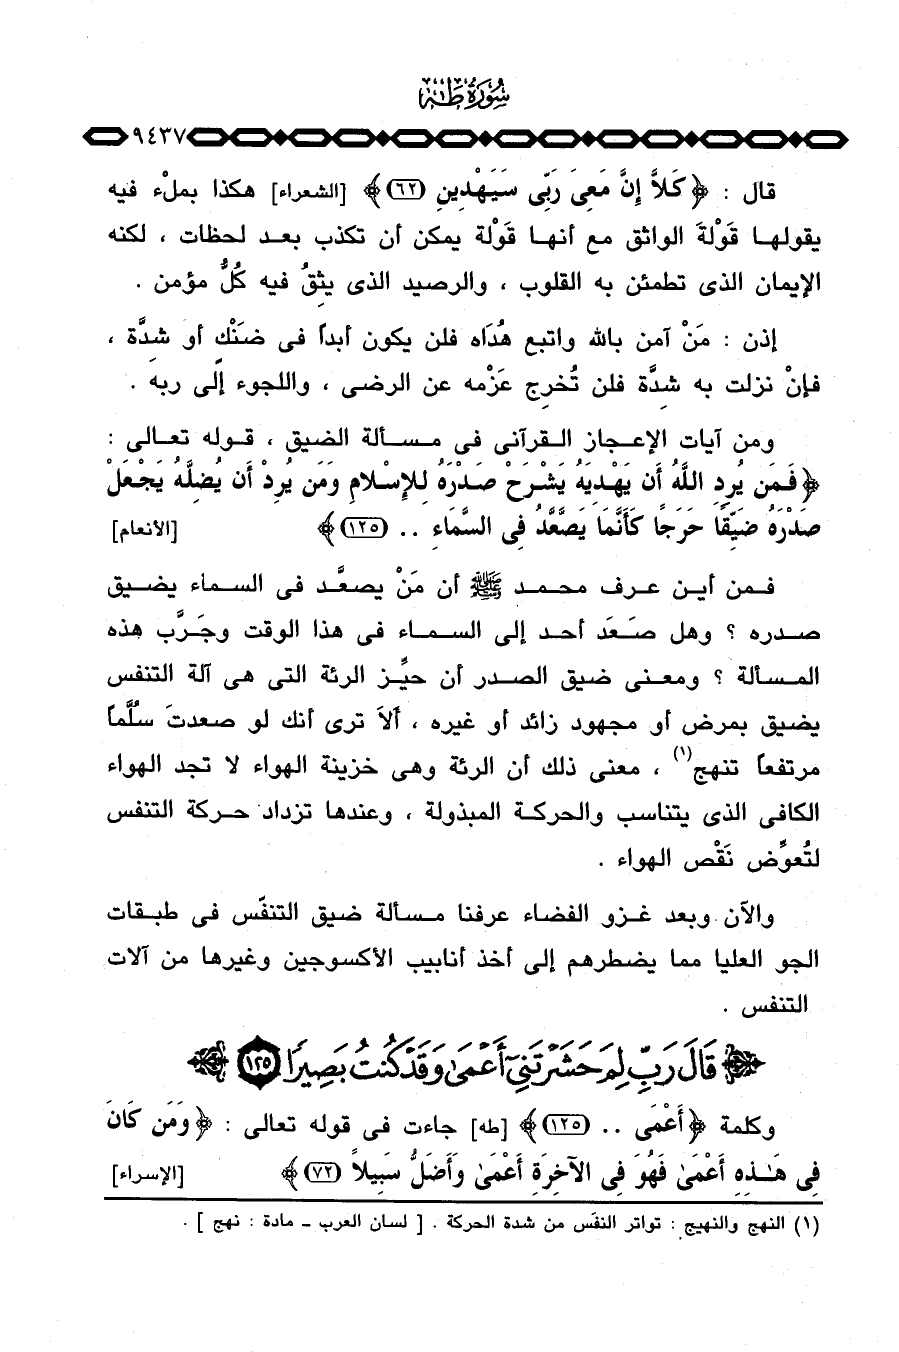 سورة طه
٩٤٣٧
قال : ﴿ كَلاَّ إِنَّ مَعِيَ رَبِّي سَيَهْدِينِ (٦٢) ﴾ [الشعراء] هكذا بملْء فيه
يقولهـا قَوْلةَ الواثق مع أنهـا قَوْلة يمكن أن تكذب بعـد لحظات ، لكنه
الإيمان الذى تطمئن به القلوب ، والرصيد الذى يثقُ فيه كُلُّ مؤمن .
إذن : مَنْ آمن بالله واتبع هُدَاه فلن يكون أبداً فى ضَنْك أو شدَّة ،
فإنْ نزلت به شدَّة فلن تُخرِج عَزْمه عن الرضى ، واللجوء إلَى ربه .
ومن آيات الإعـجاز الـقرآنى فى مـسـألة الضيق ، قـوله تعـالى :
﴿ فَمَن يُرِدِ اللَّهُ أَن يَهْدِيَهُ يَشْرَحْ صَدْرَهُ لِلإِسْلامِ وَمَن يُرِدْ أَن يُضِلَّهُ يَجْعَلْ
صَدْرَهُ ضَيِّقًا حَرَجًا كَأَنَّمَا يَصَّعَّدُ فِي السَّمَاءِ .. (١٢٥) ﴾ [الأنعام]
فـمن أيـن عـرف محـمـد ﷺ أن مَنْ يصعَّـد فى السـماء يضـيق
صـدره ؟ وهل صَعَد أحـد إلى السـماء فى هذا الوقت وجَرَّب هذه
المـسـألة ؟ ومعـنى ضيق الصـدر أن حيِّـز الرئة التى هى آلة التنفس
يضيق بمرض أو مجهود زائد أو غيره ، ألاَ ترى أنك لو صعدتَ سُلَّماً
مرتفعاً تنهج(١) ، معنى ذلك أن الرئة وهى خزينة الهواء لا تجد الهواء
الكافى الذى يتناسب والحركـة المبذولة ، وعندها تزداد حـركة التنفس
لتُعوِّض نَقْص الهواء .
والآن وبعد غـزو الفضاء عرفنا مـسألة ضيق التنفّس فى طبـقات
الجو العليا مما يضطرهم إلى أخذ أنابيب الأكسوجين وغيرها من آلات
التنفس .
﴿ قَالَ رَبِّ لِمَ حَشَرْتَنِي أَعْمَىٰ وَقَدْ كُنتُ بَصِيرًا (١٢٥) ﴾
وكلمة ﴿ أَعْمَى .. (١٢٥) ﴾ [طه] جاءت فى قوله تعالى : ﴿ وَمَن كَانَ
فِي هَـٰذِهِ أَعْمَىٰ فَهُوَ فِي الآخِرَةِ أَعْمَىٰ وَأَضَلُّ سَبِيلاً (٧٢) ﴾ [الإسراء]
(١) النهج والنهيج : تواتر النفَس من شدة الحركة . [ لسان العرب – مادة : نهج ] .